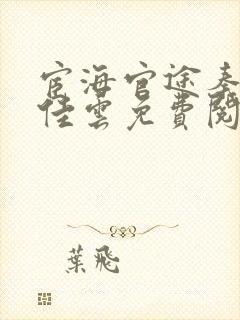 宦海官途秦
佳雲免費閱
葉飛